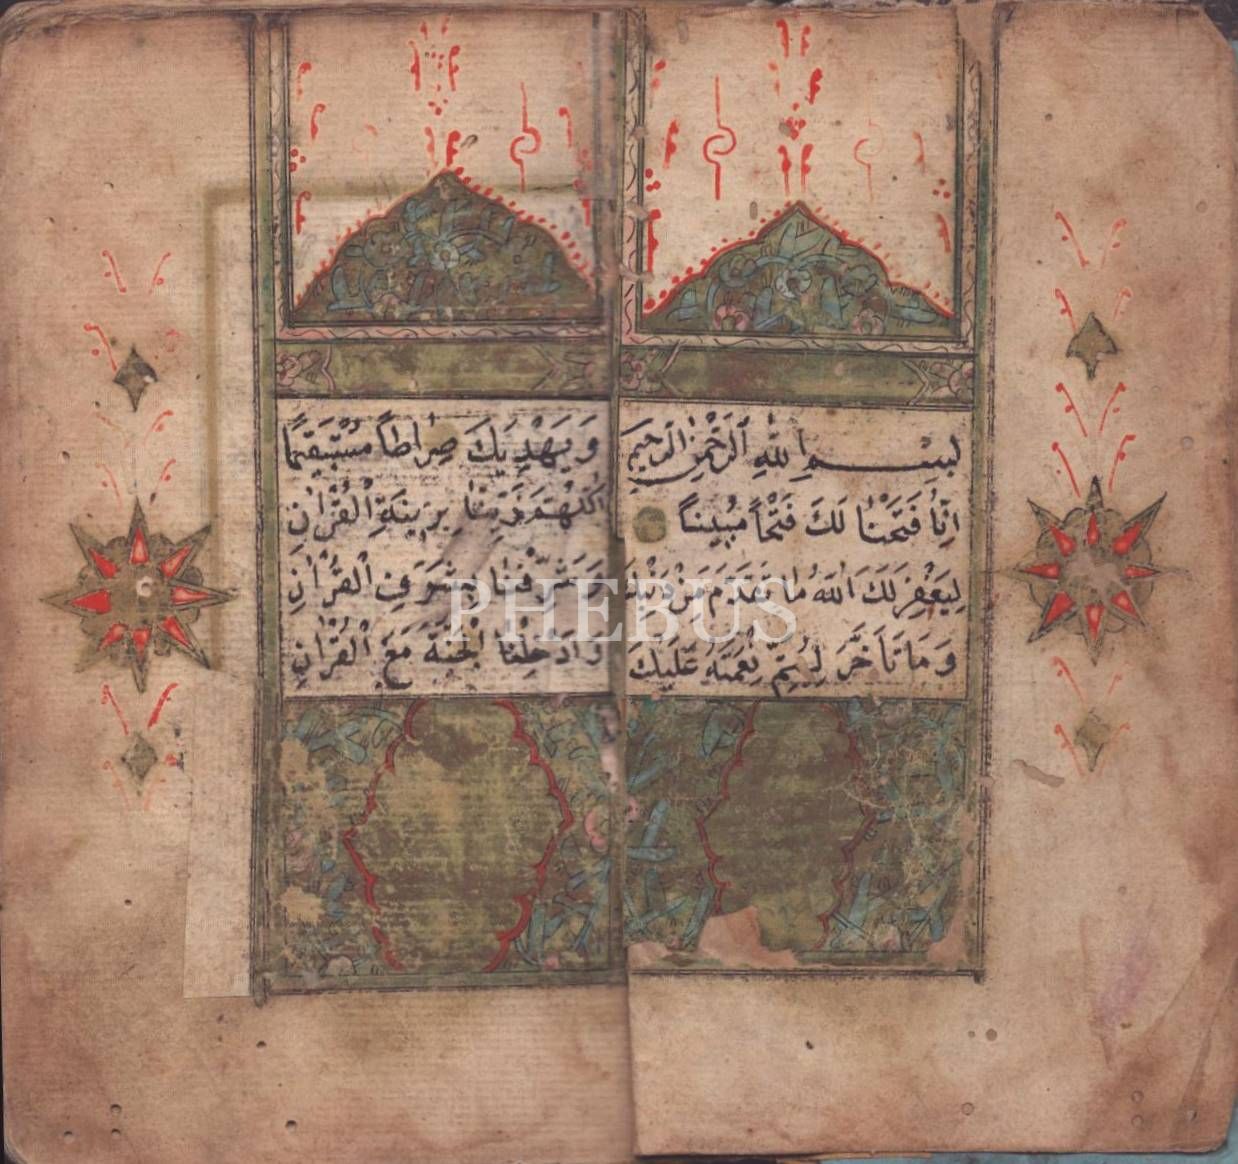 بِسْمِ اللّٰهِ الرَّحْمٰنِ الرَّحِيمِ
اِنَّا فَتَحْنَا لَكَ فَتْحًا مُبِينًا
لِيَغْفِرَ لَكَ اللّٰهُ مَا تَقَدَّمَ مِنْ ذَنْبِكَ
وَمَا تَاَخَّرَ لِيُتِمَّ نِعْمَتَهُ عَلَيْكَ
وَيَهْدِيَكَ صِرَاطًا مُسْتَقِيمًا
اَللّٰهُمَّ زَيِّنَّا بِزِينَةِ الْقُرْاٰنِ
وَشَرِّفْنَا بِشَرَفِ الْقُرْاٰنِ
وَاَدْخِلْنَا الْجَنَّةَ مَعَ الْقُرْاٰنِ
PHEBUS